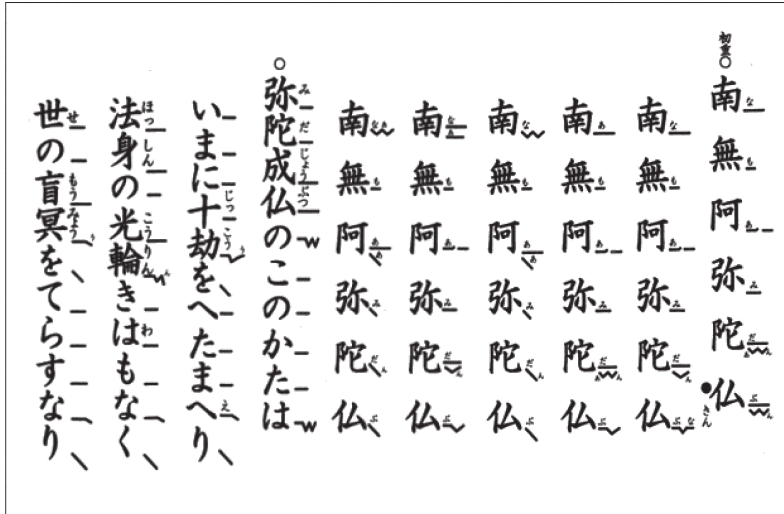 初重○
南無阿弥陀仏
南無阿弥陀仏
南無阿弥陀仏
南無阿弥陀仏
南無阿弥陀仏
南無阿弥陀仏
○弥陀成仏のこのかたは
いまに十劫をへたまへり
法身の光輪きはもなく
世の盲冥をてらすなり